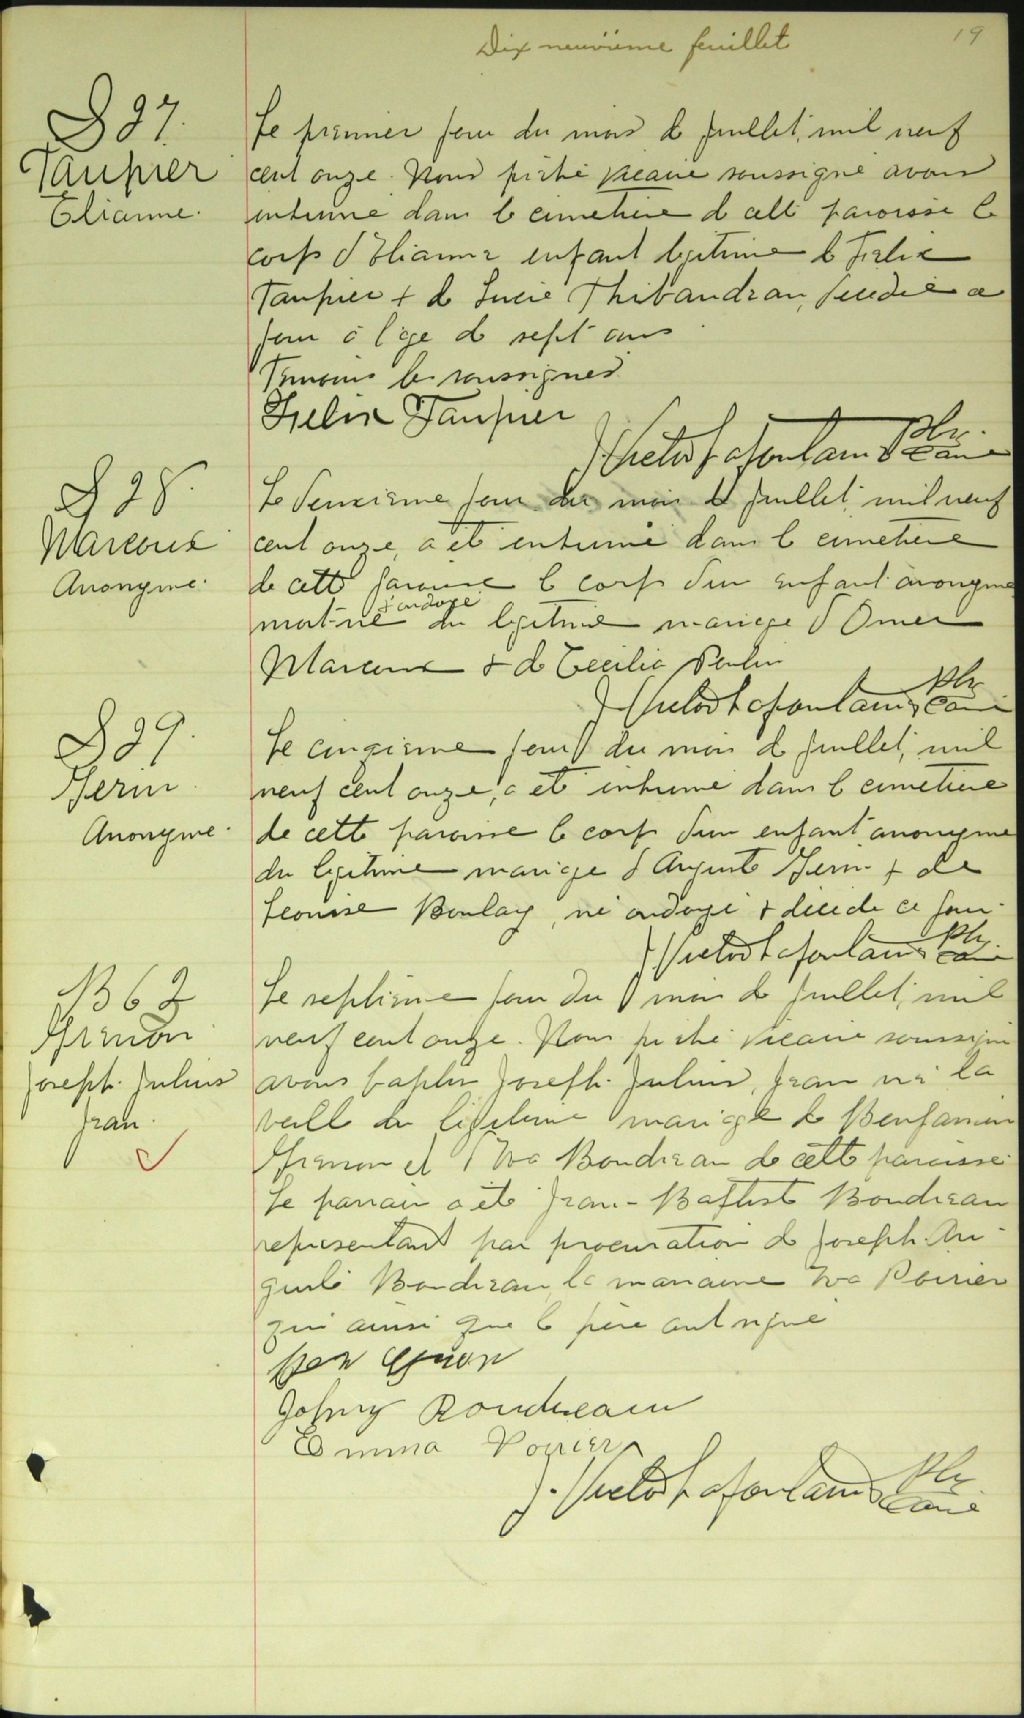 Dix neuvième feuillet
19
S 27.
Taupier
Elianne.
Le premier jour du mois de juillet, mil neuf
cent onze. Nous prêtre vicaire soussigné avons
inhumé dans le cimetière de cette paroisse le
corps d'Elianne enfant légitime de Felix
Taupier + de Lucie Thibaudeau, décédée ce
jour à l'âge de sept ans
Témoins les soussignés
Felix Taupier
J. Victor Lafontaine Ptr.
S 28
Marcoux
Anonyme.
Le deuxième jour du mois de juillet, mil neuf
cent onze, a été inhumé dans le cimetière
de cette paroisse le corps d'un enfant anonyme
+ ondoyé
mort-né du légitime mariage d'Omer
Marcoux + de Cecilia
J. Victor Lafontaine Ptr
S 29.
Anonyme.
Le cinqième jour du mois de juillet, mil
neuf cent onze, a été inhumé dans le cimetière
de cette paroisse le corps d'un enfant anonyme
du légitime mariage d'Auguste + de
Boulay, né ondoyé + décédé ce jour.
J. Victor Lafontaine Ptr
B 62
Grenon
Joseph. Julius
Jean.
Le septième jour du mois de juillet, mil
neuf cent onze. Nous prêtre vicaire soussigné
avons baptisé Joseph. Julius, Jean né la
veille du légitime mariage de Benjamin
Grenon et d'Eva Boudreau de cette paroisse.
Le parrain a été Jean-Baptiste Boudreau
representant par procuration de Joseph.
Boudreau, la marraine Poirier
qui ainsi que le père ont signé
Ben Grenon
Johny Boudreau
Emma Poirier
J. Victor Lafontaine Ptr